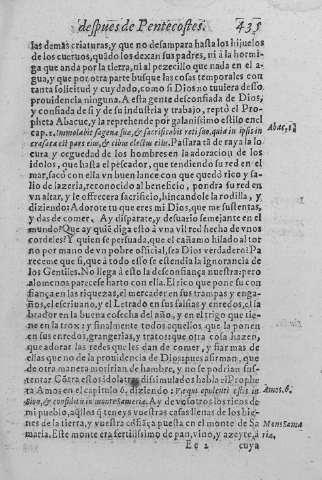 despues de Pentecostes. 435
las demàs criaturas, y que no desampara hasta los hijuelos
de los cueruos, quãdo los dexan sus padres, ni à la hormi-
ga que anda por la tierra, ni al pezecillo que nada en el a-
gua, y que por otra parte busque las cosas temporales con
tanta solicitud y cuydado, como si Dios no tuuiera desso
prouidencia ninguna. A esta gente desconfiada de Dios,
y confiada de si y de su industria y trabajo, reptò el Pro-
pheta Abacuc, y la reprehende por galanissimo estilo en el
cap. 1. Immolabit sagenæ suæ, & sacrificabit reti suo, quia in ipsis in
Abac. 1.
crassata est pars eius, & cibus electus eius. Passarà tã de raya la lo
cura y ceguedad de los hombres en la adoracion de los
idolos, que hasta el pescador, que tendiendo su red en el
mar, sacò con ella vn buen lance con que quedò rico y sa-
lio de lazeria, reconocido al beneficio, pondra su red en
vn altar, y le offrecera sacrificio, hincandole la rodilla, y
diziendo: Adorote tu que eres mi Dios, que me sustentas,
y das de comer. Ay disparate, y desuario semejante en el
mundo? Que ay quiẽ diga esto à vna vil red hecha de vnos
cordeles? Y quien se persuada, que el cañamo hilado al tor
no por mano de vn pobre official, sea Dios verdadero? Pa
receme que si, que à todo esso se estendia la ignorancia de
los Gentiles. No llega à esto la desconfiança nuestra: pero
alomenos parecese harto con ella. El rico que pone su cõ
fiança en las riquezas, el mercader en sus trampas y enga-
ños, el escriuano, y el Letrado en sus falsias y enredos, el la
brador en la buena cosecha del año, y en el trigo que tie-
ne en la trox: y finalmente todos aquellos, que la ponen
en sus enredos, grangerias, y tratos: que otra cosa hazen,
que adorar las redes que les dan de comer, y fiar mas de
ellas que no de la prouidencia de Dios: pues afirman, que
de otra manera moririan de hambre, y no se podrian sus-
tentar. Cõtra estos idolatras dissimulados habla el Prophe
ta Amos en el capitulo 6. diziendo: Væ qui opulenti estis in
Amos. 6.
Sion, & confiditis in monte Samariæ. Ay de vosotros los ricos de
mi pueblo, aq̃llos q̃ teneys vuestras casas llenas de los bie-
nes de la tierra, y vuestra cõfiãça puesta en el monte de Sa
Mons Sama
maria. Este monte era fertilissimo de pan, vino, y azeyte, à
ria.
Ee 2 cuya